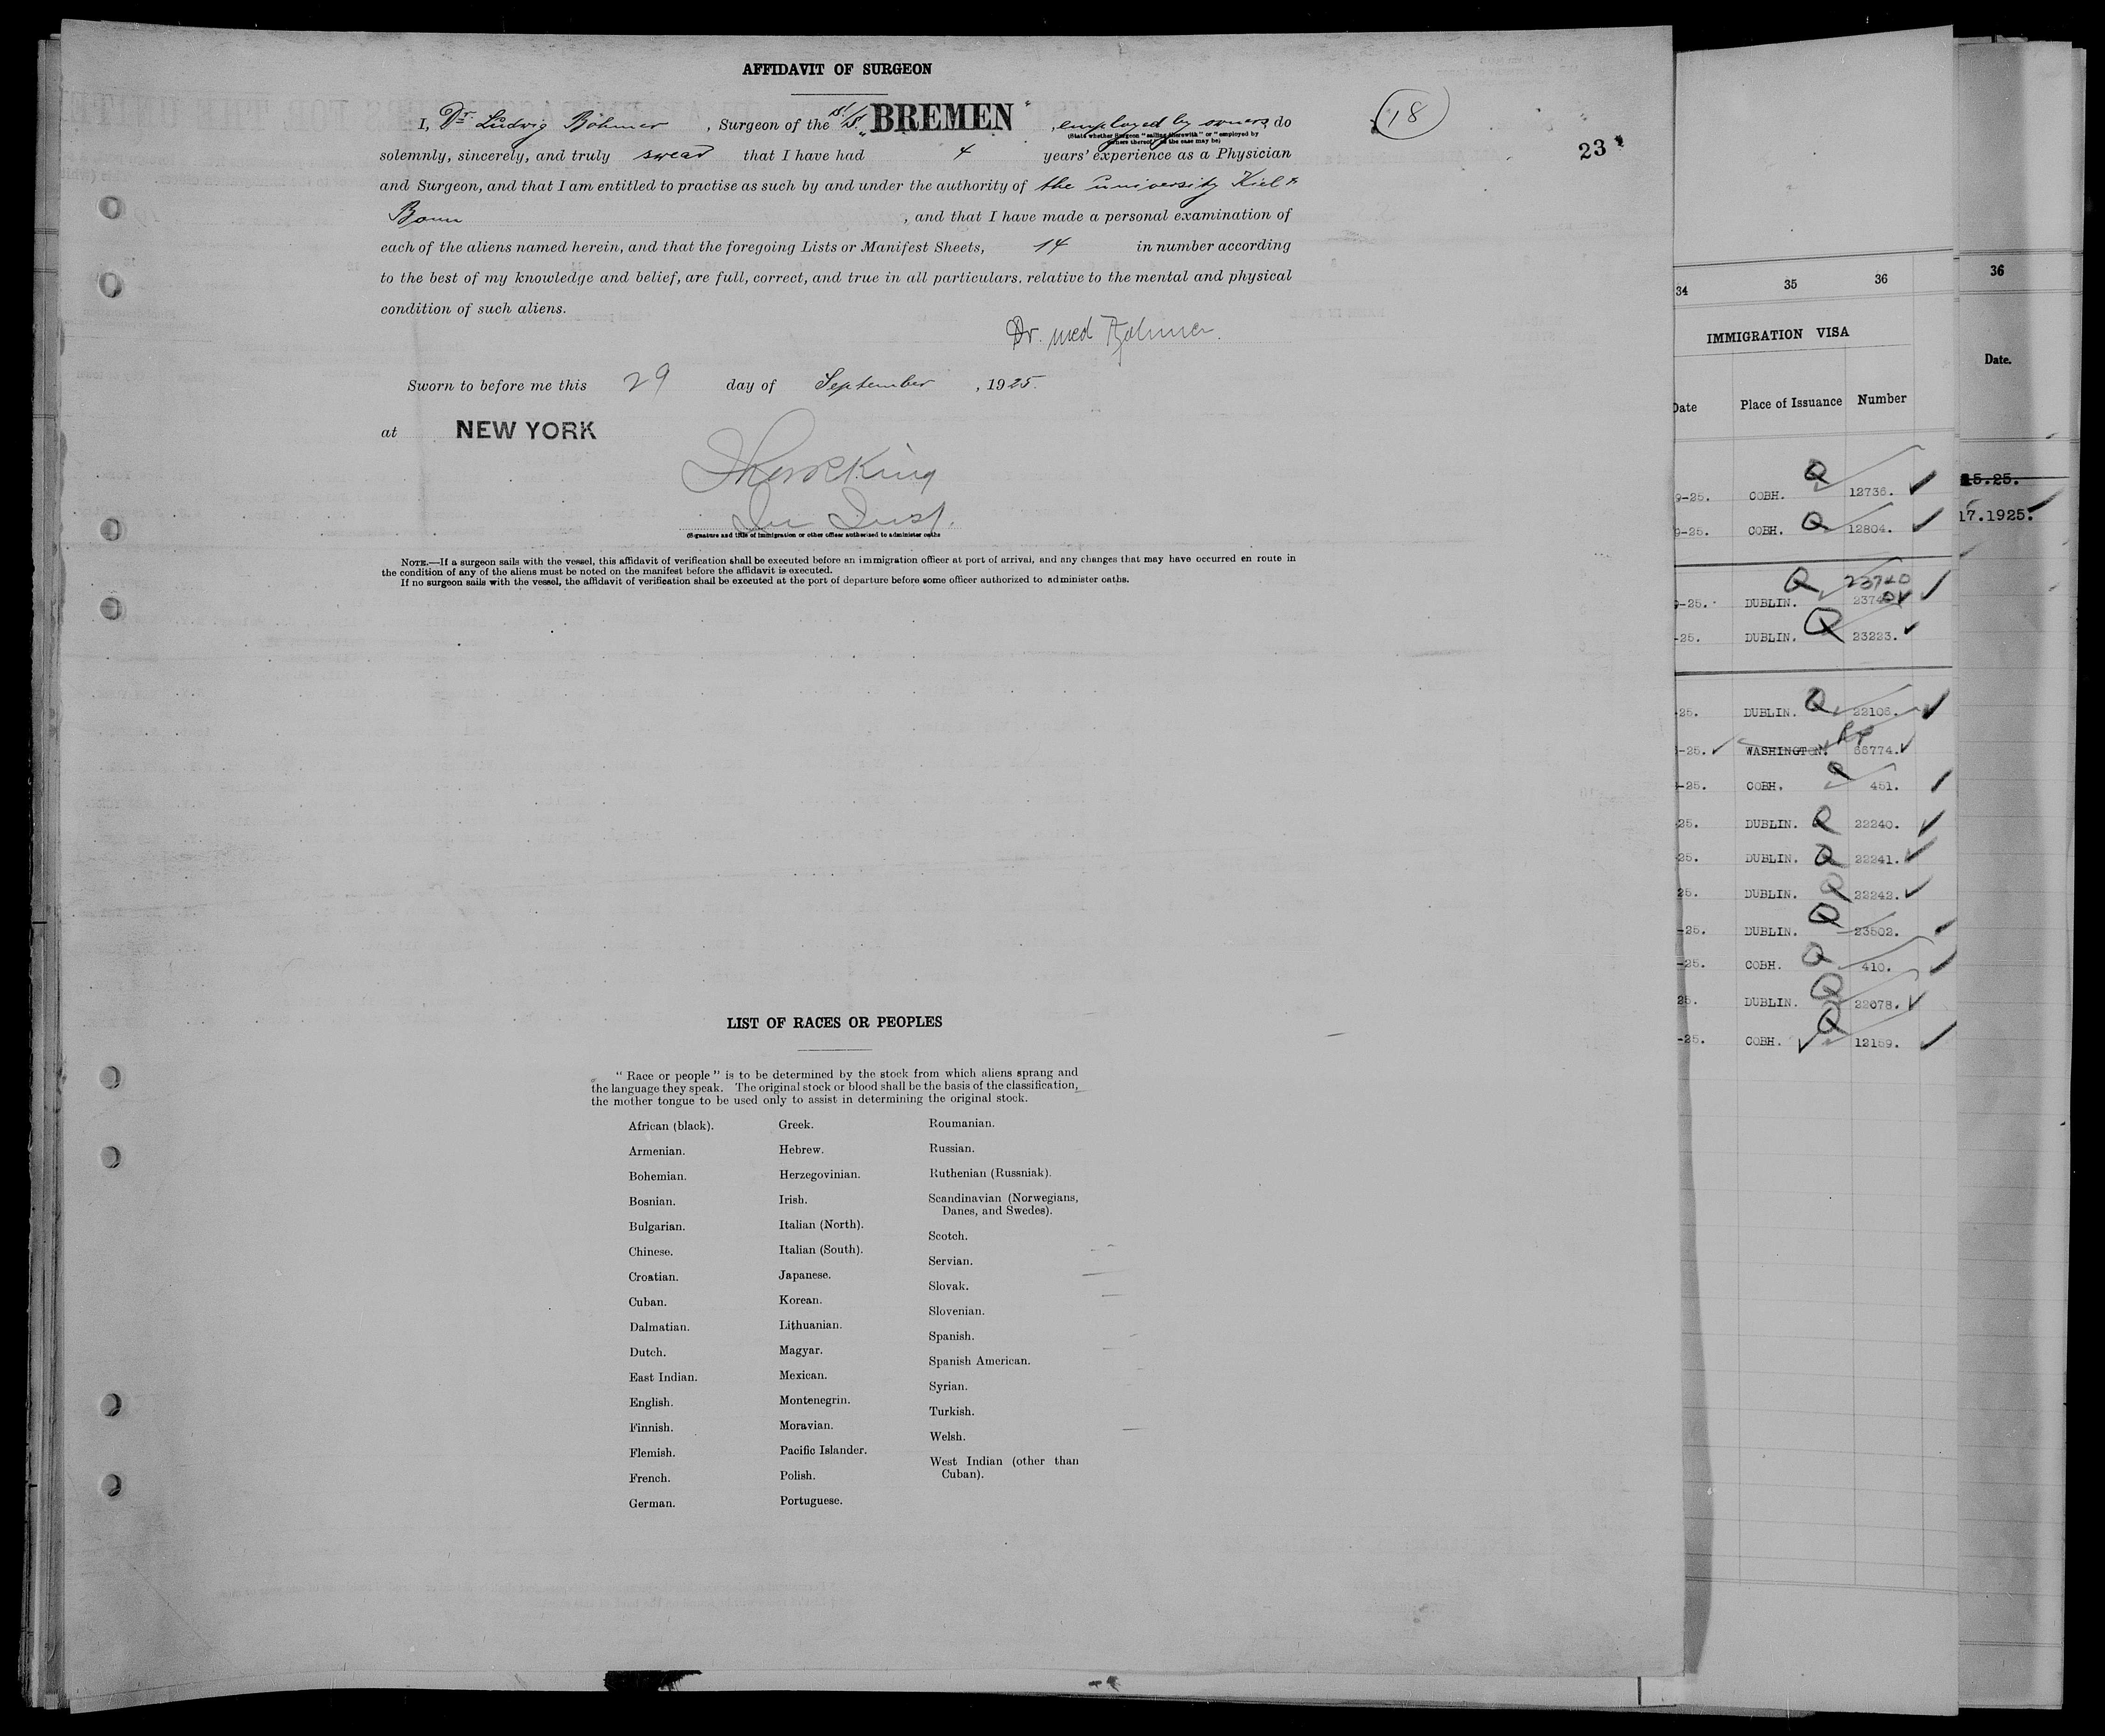 AFFIDAVIT OF SURGEON
18
23
I, Dr. Ludwig Böhmer, Surgeon of the S/S. "BREMEN", employed by owners, do
(State whether Surgeon "sailing therewith" or "employed by
owners thereof," as the case may be)
solemnly, sincerely, and truly swear that I have had 4 years' experience as a Physician
and Surgeon, and that I am entitled to practise as such by and under the authority of the university Kiel &
Bonn, and that I have made a personal examination of
each of the aliens named herein, and that the foregoing Lists or Manifest Sheets, 14 in number according
to the best of my knowledge and belief, are full, correct, and true in all particulars, relative to the mental and physical
condition of such aliens.
Dr. med Böhmer.
Sworn to before me this 29 day of September, 1925.
at NEW YORK
(Signature and title of immigration or other officer authorised to administer oaths
NOTE.—If a surgeon sails with the vessel, this affidavit of verification shall be executed before an immigration officer at port of arrival, and any changes that may have occurred en route in
the condition of any of the aliens must be noted on the manifest before the affidavit is executed.
If no surgeon sails with the vessel, the affidavit of verification shall be executed at the port of departure before some officer authorized to administer oaths.
LIST OF RACES OR PEOPLES
"Race or people" is to be determined by the stock from which aliens sprang and
the language they speak. The original stock or blood shall be the basis of the classification,
the mother tongue to be used only to assist in determining the original stock.
African (black).
Armenian.
Bohemian.
Bosnian.
Bulgarian.
Chinese.
Croatian.
Cuban.
Dalmatian.
Dutch.
East Indian.
English.
Finnish.
Flemish.
French.
German.
Greek.
Hebrew.
Herzegovinian.
Irish.
Italian (North).
Italian (South).
Japanese.
Korean.
Lithuanian.
Magyar.
Mexican.
Montenegrin.
Moravian.
Pacific Islander.
Polish.
Portuguese.
Roumanian.
Russian.
Ruthenian (Russniak).
Scandinavian (Norwegians,
Danes, and Swedes).
Scotch.
Servian.
Slovak.
Slovenian.
Spanish.
Spanish American.
Syrian.
Turkish.
Welsh.
West Indian (other than
Cuban).
34 35 36
IMMIGRATION VISA
Date Place of Issuance Number
9-25. COBH. Q 12736.
9-25. COBH. Q 12804.
Q 23740
-25. DUBLIN.
-25. DUBLIN. Q 23223.
25. DUBLIN. Q 22106.
-25. WASHINGTON. 66774.
-25. COBH. Q 451.
25. DUBLIN. Q 22240.
25. DUBLIN. Q 22241.
25. DUBLIN. Q 22242.
-25. DUBLIN. Q 23502.
-25. COBH. Q 410.
25. DUBLIN. Q 22078.
-25. COBH. Q 12159.
36
Date.
15.25.
17.1925.